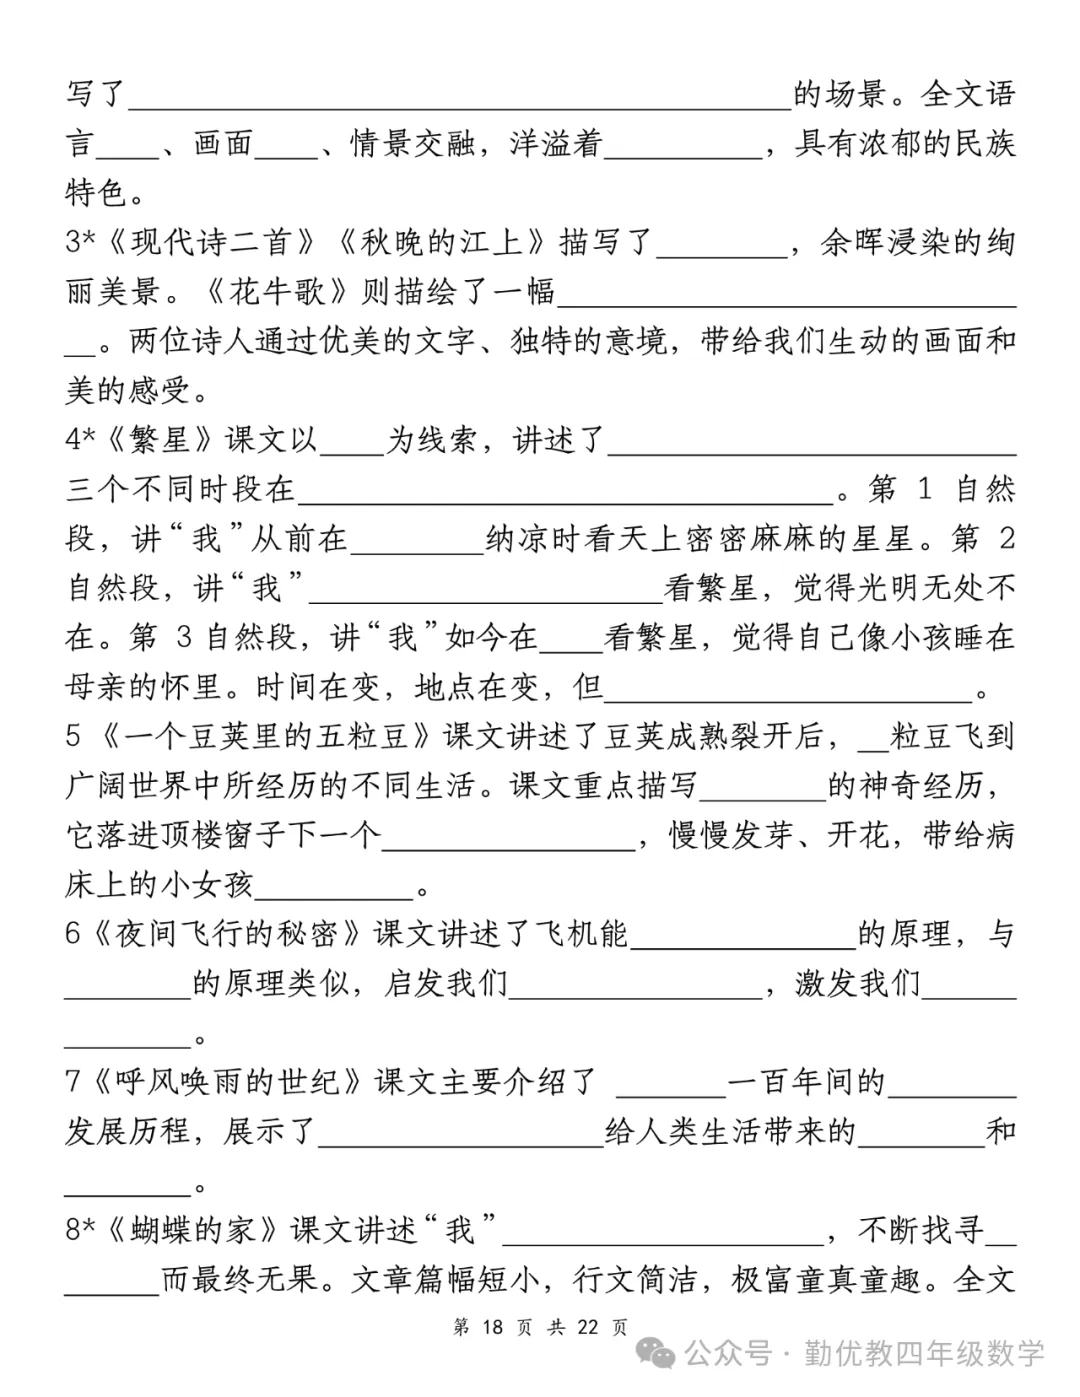 写了__________________________________________的场景。全文语
言____、画面____、情景交融，洋溢着__________，具有浓郁的民族
特色。
3*《现代诗二首》《秋晚的江上》描写了________，余晖浸染的绚
丽美景。《花牛歌》则描绘了一幅_____________________________
__。两位诗人通过优美的文字、独特的意境，带给我们生动的画面和
美的感受。
4*《繁星》课文以____为线索，讲述了__________________________
三个不同时段在__________________________________。第 1 自然
段，讲“我”从前在________纳凉时看天上密密麻麻的星星。第 2
自然段，讲“我”______________________看繁星，觉得光明无处不
在。第 3 自然段，讲“我”如今在____看繁星，觉得自己像小孩睡在
母亲的怀里。时间在变，地点在变，但_______________________。
5 《一个豆荚里的五粒豆》课文讲述了豆荚成熟裂开后，__粒豆飞到
广阔世界中所经历的不同生活。课文重点描写________的神奇经历，
它落进顶楼窗子下一个________________，慢慢发芽、开花，带给病
床上的小女孩__________。
6《夜间飞行的秘密》课文讲述了飞机能______________的原理，与
________的原理类似，启发我们________________，激发我们______
________。
7《呼风唤雨的世纪》课文主要介绍了 _______一百年间的________
发展历程，展示了__________________给人类生活带来的________和
________。
8*《蝴蝶的家》课文讲述“我”____________________，不断找寻__
______而最终无果。文章篇幅短小，行文简洁，极富童真童趣。全文
第 18 页 共 22 页
公众号 · 勤优教四年级数学